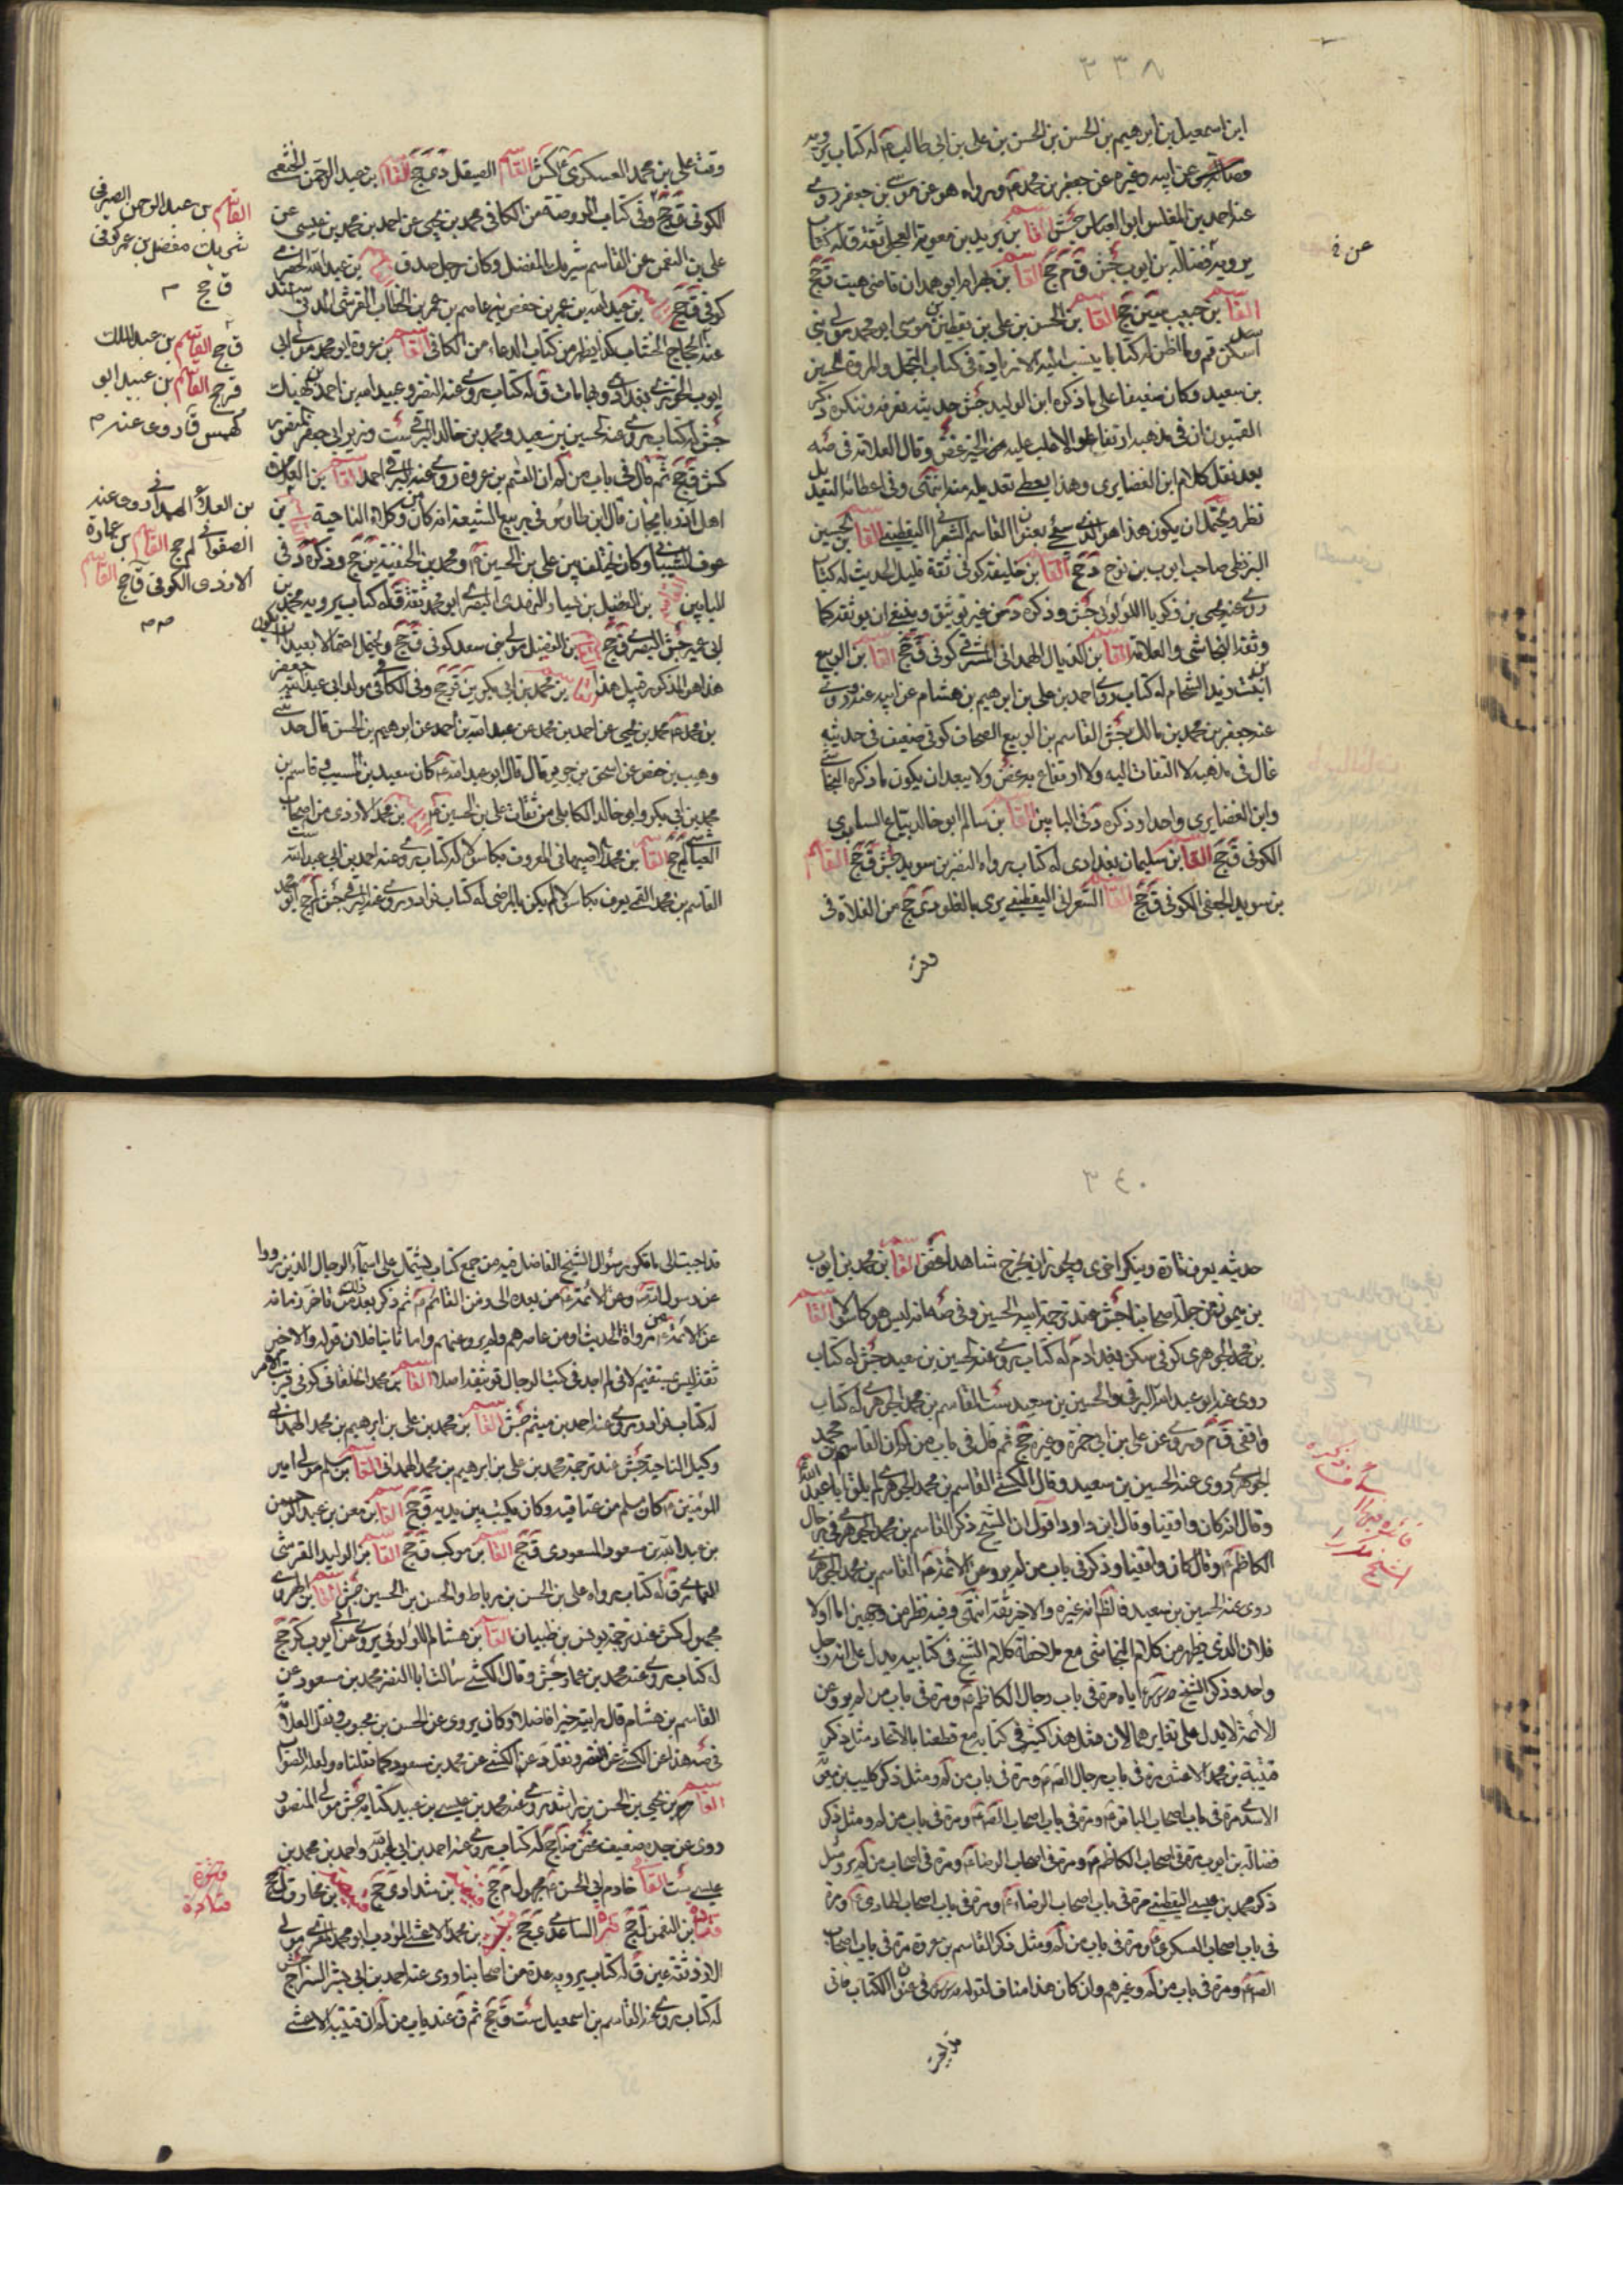 ٣٣٨
ابن اسمعيل بن ابرهيم بن الحسن بن الحسن بن علي بن ابي طالب ع له كتاب يرويه
عن ابيه وغيره عن جعفر بن محمد ع ورواه هو عن موسى بن جعفر روى
عنه احمد بن المغلس ابو العباس جش القاسم بن بريد بن معوية العجلي ثقة ق له كتاب
يرويه فضالة بن ايوب جش ق م جخ القاسم بن بهرام ابو همدان قاضي هيت ق جخ
القاسم بن حبيب جخ القاسم بن الحسن بن علي بن يقطين بن موسى ابو محمد مولى بني
اسد سكن قم وما اظن له كتابا ينسب اليه الا زيادة في كتاب التجمل والمروة للحسين
بن سعيد وكان ضعيفا على ما ذكره ابن الوليد جش حديثه نعرفه وننكره ذكر
القميون ان في مذهبه ارتفاعا والاغلب عليه الخير غض وقال العلامة في صه
بعد نقل كلام ابن الغضايري وهذا يعطي تعديله منه انتهى وفي اعطائه التعديل
نظر ويحتمل ان يكون هذا هو الذي سيجئ بعنوان القاسم الشعراني اليقطيني القاسم بن الحسين
البزنطي صاحب ايوب بن نوح د جخ القاسم بن خليفة كوفي ثقة قليل الحديث له كتاب
روى عنه يحيى بن زكريا اللؤلوئي جش وذكره د من غير توثيق وينبغي ان يوثقه كما
وثقه النجاشي والعلامة القاسم بن الذيال الهمداني المشرقي كوفي ق جخ القاسم بن الربيع
ابن بنت زيد الشحام له كتاب روى احمد بن علي بن ابرهيم بن هشام عن ابيه عنه وروى
عنه جعفر بن محمد بن مالك جش القاسم بن الربيع الصحاف كوفي ضعيف في حديثه
غال في مذهبه لا التفات اليه ولا ارتفاع به غض ولا يبعد ان يكون ما ذكره النجاشي
وابن الغضايري واحدا وذكره د في البابين القاسم بن سالم ابو خالد بياع السابري
الكوفي ق جخ القاسم بن سليمان بغدادي له كتاب رواه النضر بن سويد جش ق جخ القاسم
بن سويد الجعفي الكوفي ق جخ القاسم الشعراني اليقطيني يرمى بالغلو دي جخ من الغلاة في
وقت
عن
وقت علي بن محمد العسكري ع كش القاسم الصيقل دي جخ القاسم بن عبد الرحمن الخثعمي
الكوفي ق جخ وفي كتاب الروضة من الكافي محمد بن يحيى عن احمد بن محمد بن عيسى عن
علي بن النعمن عن القاسم شريك المفضل وكان رجل صدق القاسم بن عبد الله الحضرمي
كوفي ق جخ القاسم بن عبيد الله بن عمر بن حفص بن عاصم بن عمر بن الخطاب القرشي المدني
القاسم بن عروة ابو محمد مولى ابي
ايوب الخوزي بغدادي وبها مات ق له كتاب روى عنه النضر وعبيد الله بن احمد بن نهيك
جش له كتاب روى عنه الحسين بن سعيد ومحمد بن خالد البرقي ست
كش ق جخ ثم قال في باب من لم ان القسم بن عروة روى عنه البرقي احمد القاسم بن العلاء
اهل اذربايجان قال ابن طاوس في ربيع الشيعة انه كان من وكلاء الناحية القاسم بن
عوف الشيباني وكان يختلف بين علي بن الحسين ع ومحمد بن الحنفية ين جخ وذكره د في
البابين القاسم بن الفضيل بن يسار النهدي البصري ابو محمد ثقة ق له كتاب يرويه محمد بن
ابي عمير جش البصري ق جخ القاسم بن الفضيل مولى بني سعد كوفي ق جخ ويحتمل احتمالا بعيدا ان يكون
هذا هو المذكور قبيل هذا القاسم بن محمد بن ابي بكر ين ق جخ وفي الكافي في مولد ابي عبد الله جعفر
بن محمد ع محمد بن يحيى عن احمد بن محمد عن عبد الله بن احمد عن ابرهيم بن الحسن قال حدثني
وهيب بن حفص عن اسحق بن جرير قال قال ابو عبد الله ع كان سعيد بن المسيب وقاسم بن
محمد بن ابي بكر وابو خالد الكابلي من ثقات علي بن الحسين ع القاسم بن محمد الازدي من اصحاب
العياشي لم جخ القاسم بن محمد الاصبهاني المعروف بكاسولا له كتاب روى عنه احمد بن ابي عبد الله ست
القاسم بن محمد القمي يعرف بكاسولا لم يكن بالمرضي له كتاب نوادر روى عنه البرقي جش لم جخ ابو محمد
القاسم بن عبد الرحمن الصيرفي
شريك مفضل بن عمر كوفي
ق جخ م
القاسم بن عبد الملك
ق جخ القاسم بن عبيد ابو
كهمس ق روى عنه م
بن العلاء الهمداني روى عنه
الصفواني لم جخ القاسم بن عمارة
الازدي الكوفي ق جخ القاسم
٣٤٠
حديثه يعرف تارة وينكر اخرى ويجوز ان يخرج شاهدا غض القاسم بن محمد بن ايوب
بن ميمون من جلة اصحابنا جش عند ترجمة ابنه الحسين وفي صه انه ليس هو كاسولا القاسم
بن محمد الجوهري كوفي سكن بغداد م له كتاب روى عنه الحسين بن سعيد جش له كتاب
روى عنه ابو عبد الله البرقي والحسين بن سعيد ست القاسم بن محمد الجوهري له كتاب
واقفي ق م وروى عن علي بن ابي حمزة وغيره جخ ثم قال في باب من لم ان القاسم بن محمد
الجوهري روى عنه الحسين بن سعيد وقال الكشي القاسم بن محمد الجوهري لم يلق ابا عبد الله
وقال انه كان واقفيا وقال ابن داود اقول ان الشيخ ذكر القاسم بن محمد الجوهري في رجال
الكاظم ع وقال كان واقفيا وذكر في باب من لم يرو عن الائمة ع القاسم بن محمد الجوهري
روى عنه الحسين بن سعيد فالظاهر انه غيره والاخير ثقة انتهى وفيه نظر من وجهين اما اولا
فلان الذي يظهر من كلام النجاشي مع ملاحظة كلام الشيخ في كتابيه يدل على انه رجل
واحد وذكر الشيخ قدس سره اياه مرة في باب رجال الكاظم ع ومرة في باب من لم يرو عن
الائمة لا يدل على تغايرهما لان مثل هذا كثير في كتابه مع قطعنا بالاتحاد مثل ذكر
قتيبة بن محمد الاعشى مرة في باب رجال الصادق ع ومرة في باب من لم ومثل ذكر كليب بن معوية
الاسدي مرة في باب اصحاب الباقر ع ومرة في باب اصحاب الصادق ع ومرة في باب من لم ومثل ذكر
فضالة بن ايوب مرة في اصحاب الكاظم ع ومرة في اصحاب الرضا ع ومرة في اصحاب من لم يرو ومثل
ذكر محمد بن عيسى اليقطيني مرة في باب اصحاب الرضا ع ومرة في باب اصحاب الهادي ع ومرة
في باب اصحاب العسكري ع ومرة في باب من لم ومثل ذكر القاسم بن عروة مرة في باب اصحاب
الصادق ع ومرة في باب من لم وغيرهم وان كان هذا مناف لقوله قدس سره في عنوان الكتاب فاني
قد اجبت
قد اجبت الى ما تكرر سؤال الشيخ الفاضل فيه من جمع كتاب يشتمل على اسماء الرجال الذين رووا
عن رسول الله وعن الائمة ع من بعده الى زمن القائم ع ثم ذكر بعد ذلك من تاخر زمانه
عن الائمة ع من رواة الحديث او من عاصرهم ولم يرو عنهم واما ثانيا فلان قوله والاخير
ثقة ليس بمستقيم لاني لم اجد في كتب الرجال توثيقه اصلا القاسم بن محمد الخلقاني كوفي قريب الامر
له كتاب نوادر روى عنه احمد بن ميثم جش القاسم بن محمد بن علي بن ابرهيم بن محمد الهمداني
وكيل الناحية جش عند ترجمة محمد بن علي بن ابرهيم بن محمد الهمداني القاسم بن مسلم مولى امير
المؤمنين ع كان مسلم من عتاقيه وكان يكتب بين يديه ق جخ القاسم بن معن بن عبد الرحمن
بن عبد الله بن مسعود المسعودي ق جخ القاسم بن موكب ق جخ القاسم بن الوليد القرشي
العماري ق له كتاب رواه علي بن الحسن بن رباط والحسن بن الحسين جش القاسم بن الهروي
مجهول كش عند ترجمة يونس بن ظبيان القاسم بن هشام اللؤلوئي يروي عن ابي ايوب كر جخ
له كتاب روى عنه محمد بن عمار جش وقال الكشي سألت ابا النضر محمد بن مسعود عن
القاسم بن هشام قال رايته خيرا فاضلا وكان يروي عن الحسن بن محبوب ونقل العلامة
في صه هذا عن الكشي عن النضر ونقل د عن الكشي عن محمد بن مسعود كما نقلناه ولعله الصواب
القاسم بن يحيى بن الحسن بن راشد روى عنه محمد بن عيسى بن عبيد كتابه جش مولى المنصور
روى عن جده ضعيف غض ضا جخ له كتاب روى عنه احمد بن ابي عبد الله واحمد بن محمد بن
عيسى ست القاسم خادم ابي الحسن ع مجهول م جخ بن شداد ي جخ بن مخارق ل جخ
قتادة بن النعمن ل جخ الساعدي ي جخ قتيبة بن محمد الاعشى المؤدب ابو محمد المقرئ مولى
الازد ثقة عين ق له كتاب يرويه عدة من اصحابنا روى عنه احمد بن ابي بشر السراج جش
له كتاب روى عنه القاسم بن اسمعيل ست ق جخ ثم ق عند باب من لم ان قتيبة الاعشى